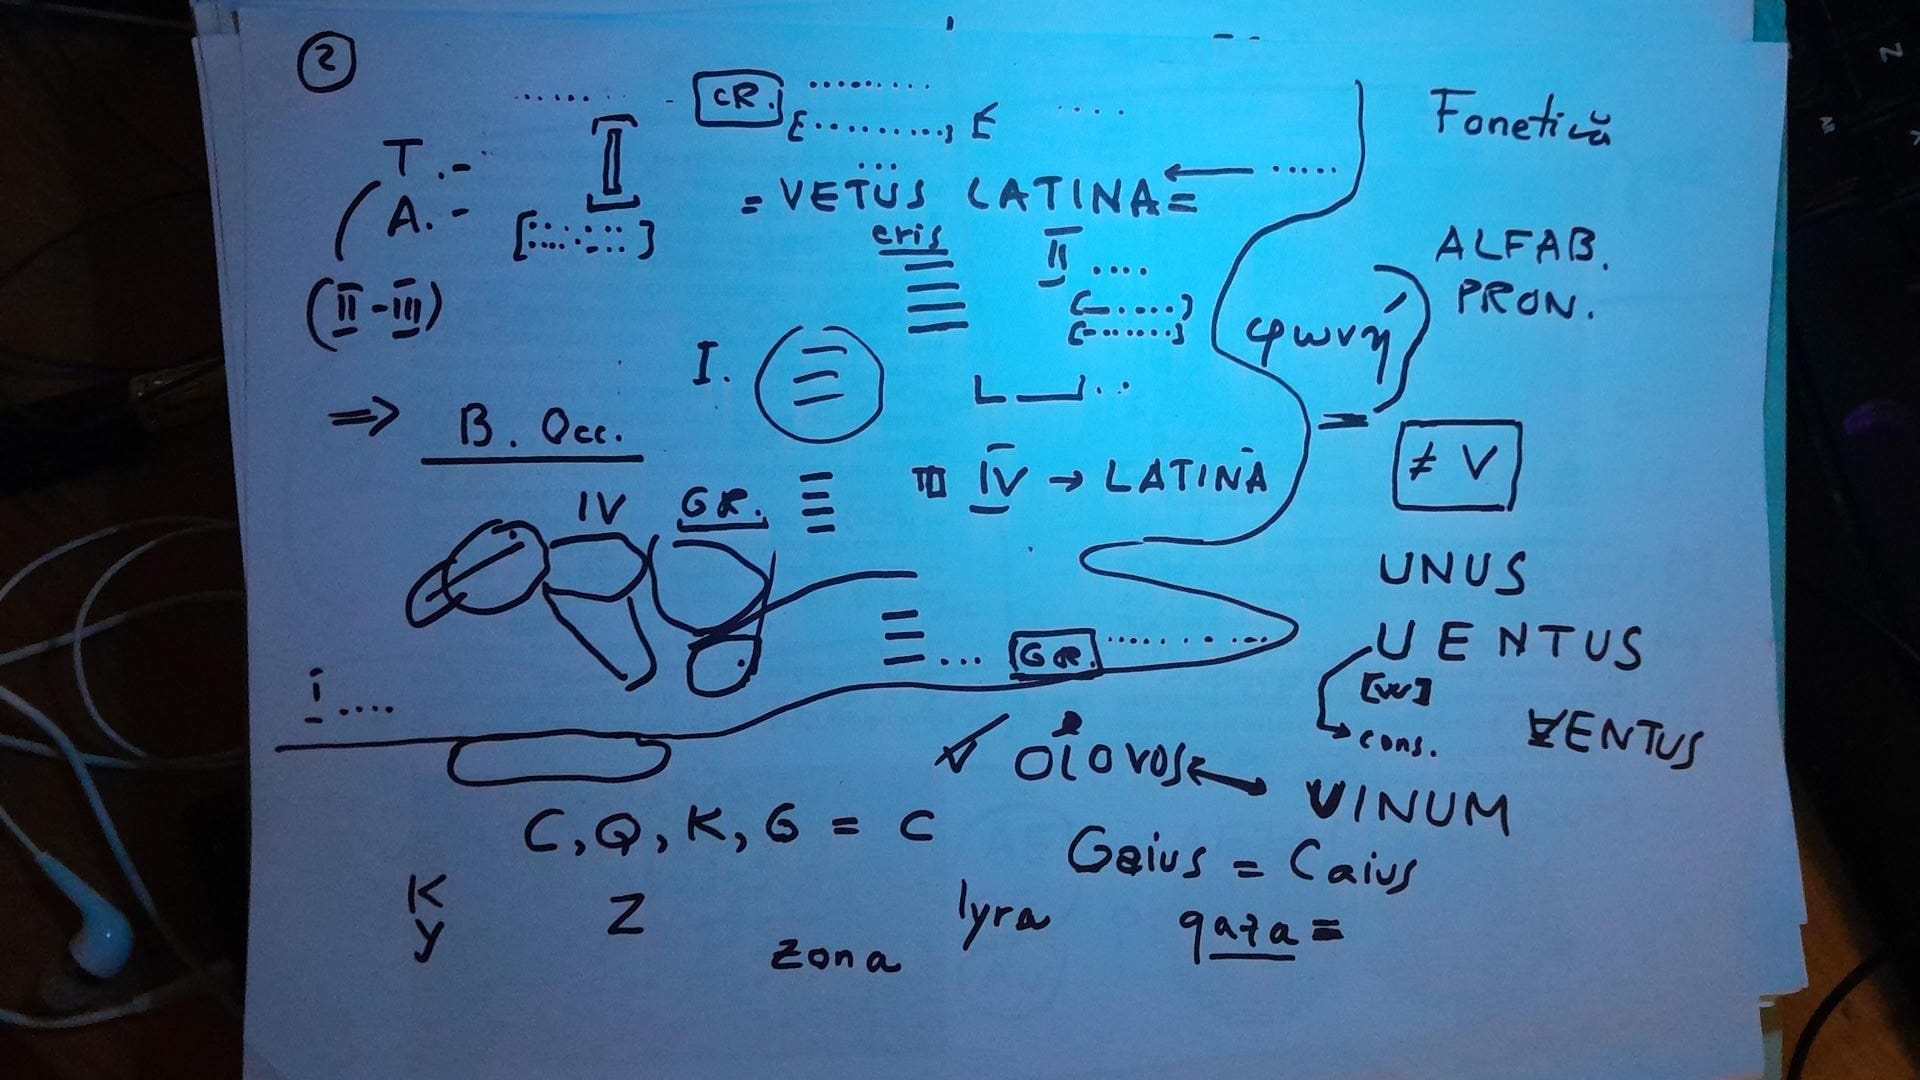 2
CR.
T.-
A.-
(II-III)
= VETUS LATINA =
eris
II ....
I.
⇒ B. Occ.
IV GR.
III IV → LATINA
i ....
... GR. .........
Fonetică
ALFAB.
PRON.
φωνή
=
≠ V
UNUS
UENTUS
cons. VENTUS
οἶονος ↔ VINUM
C, Q, K, G = C
Gaius = Caius
K
y
Z
zona
lyra
gaza =